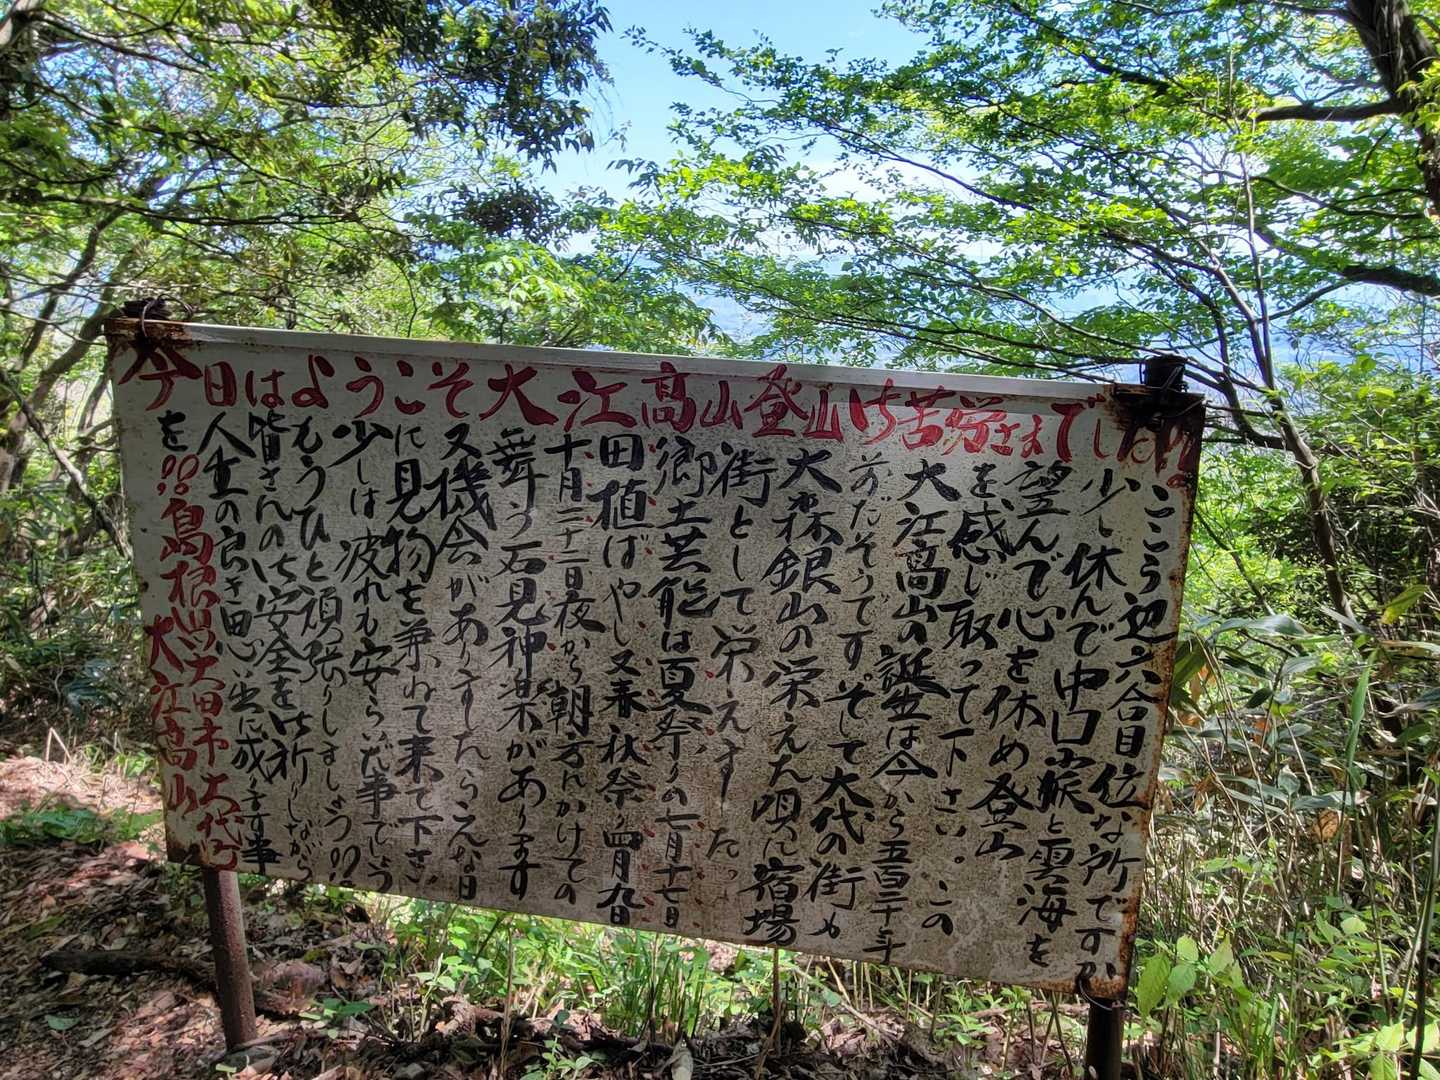 今日はようこそ大江高山登山は苦労さまでした!!
ここう辺六合目位な所ですか
少し休んで中口霞と雲海を
望んで心を休め登山
を感じ取って下さい。この
大江高山の誕生は今から五百三十年
前だそうです。そして大代の街も
大森銀山の栄えた頃に宿場
街として栄えました
郷土芸能は夏祭りの七月十七日
田植ばやし又春秋祭り四月九日
十月二十二日夜から朝方にかけての
舞う石見神楽があります
又機会がありましたらえんな日
に見物を兼ねて来て下さい
少しは疲れも安らいだ事でしょう
もうひと頑張りしましょう!!
皆さんの御安全を御祈りしながら
人生の良き思い出に成ります事
を!!島根県大田市大代町
大江高山